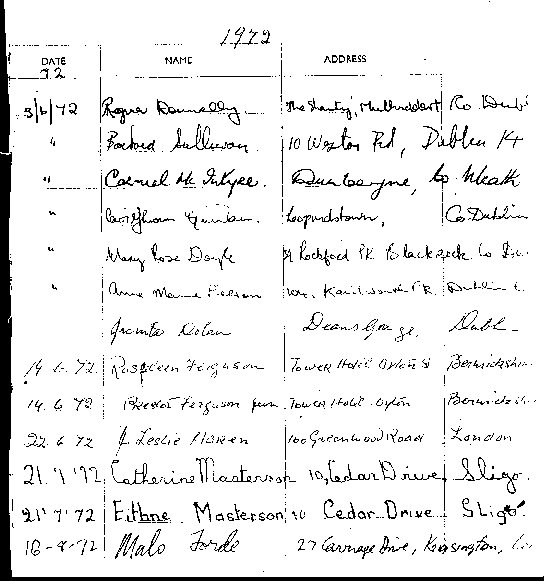 1972
DATE NAME ADDRESS
72
3/6/72 Donnelly The Shanty, Mulhuddart Co Dub
" Sullivan 10 Weston Rd, Dublin 14
" Mc Intyre. Dunboyne, Co Meath
" Leopardstown, Co Dublin
" Mary Rose Doyle Rockford PK Blackrock Co Du
" Anne Marie Kenilworth PK. Dublin 6
Jacinta Dolan Deans Grange, Dubl
14. 6. 72 Ferguson Tower Hotel Oxton St Berwickshir
14. 6 72 Ferguson jun. Tower Hotel Oxton Berwicksh
22. 6 72 J Leslie 100 Greenwood Road London
21 '7 '72 Catherine Masterson 10, Cedar Drive, Sligo.
21' 7' 72 Eithne Masterson 10 Cedar Drive Sligo.
18-8-72 Malo Forde 27 Drive, Kensington,